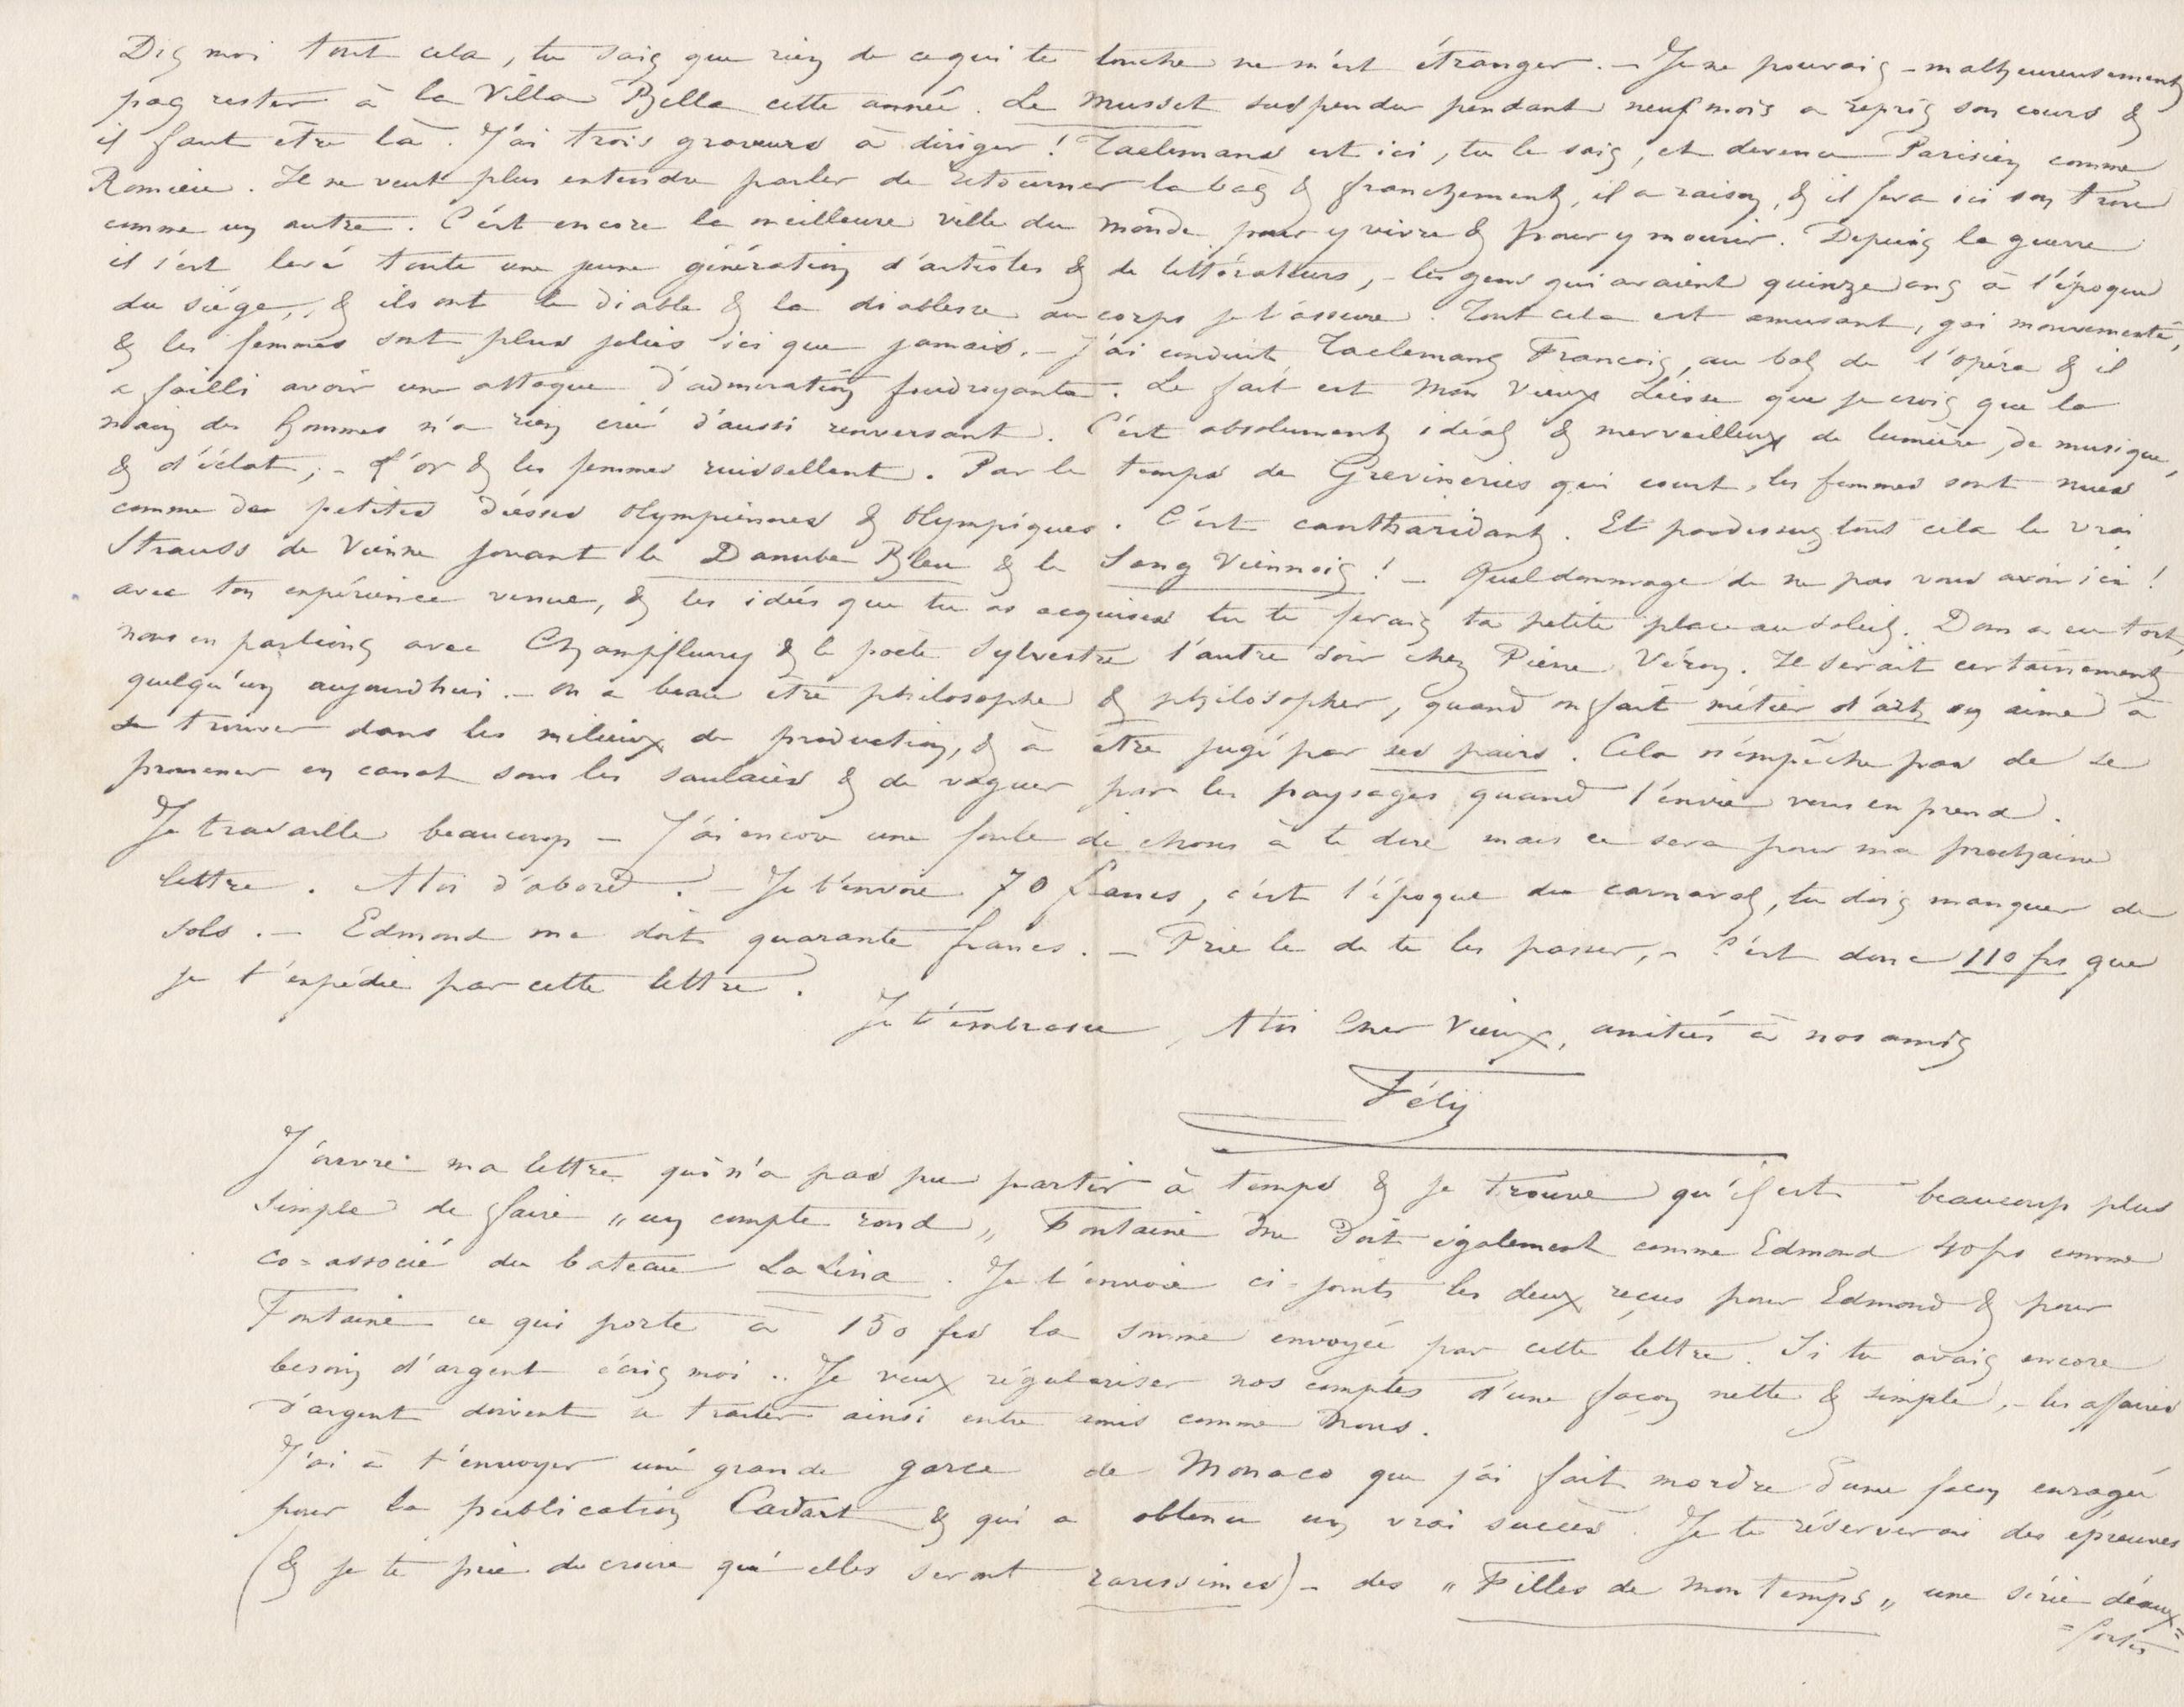 Dis moi tout cela, tu sais que rien de ce qui te touche ne m'est étranger. – Je ne pouvais – malheureusement
pas rester à la Villa Bella cette année. Le Musset suspendu pendant neuf mois a repris son cours &
il faut être là. J'ai trois graveurs à diriger ! Taelemans est ici, tu le sais, et devenu Parisien comme
Romieu. Il ne veut plus entendre parler de retourner là bas & franchement, il a raison, & il fera ici son trou
comme un autre. C'est encore la meilleure ville du monde pour y vivre & pour y mourir. Depuis la guerre
il s'est levé toute une jeune génération d'artistes & de littérateurs, – les gens qui avaient quinze ans à l'époque
du siége, & ils ont le diable & la diablesse au corps je t'assure. Tout cela est amusant, gai mouvementé,
& les femmes sont plus jolies ici que jamais. – J'ai conduit Taelemans François, au bal de l'opéra & il
a failli avoir une attaque d'admiration foudroyante. Le fait est Mon Vieux Liesse que je crois que la
main des hommes n'a rien créé d'aussi renversant. C'est absolument idéal & merveilleux de lumière, de musique,
& d'éclat, – L'or & les femmes ruissellent. Par le temps de Grevineries qui court, les femmes sont nues
comme des petites déesses Olympiennes & Olympiques. C'est cantharidant. Et pardessus tout cela le vrai
Strauss de Vienne jouant le Danube Bleu & le Sang Viennois ! – Quel dommage de ne pas vous avoir ici !
avec ton expérience venue, & les idées que tu as acquises tu te ferais ta petite place au soleil. Dom a eu tort,
nous en parlions avec Champfleury & le poete Sylvestre l'autre soir chez Pierre Véron. Il serait certainement
quelqu'un aujourdhui. – On a beau être philosophe & philosopher, quand on fait métier d'art on aime à
se trouver dans les milieux de production, & à être jugé par ses pairs. Cela n'empêche pas de se
promener en canot sous les saulaies & de vaguer par les paysages quand l'envie vous en prend.
Je travaille beaucoup – J'ai encore une foule de choses à te dire mais ce sera pour ma prochaine
lettre. A toi d'abord. – Je t'envoie 70 francs, c'est l'époque du carnaval, tu dois manquer de
sols. – Edmond me doit quarante francs. – Prie le de te les passer, – c'est donc 110 frs que
je t'expédie par cette lettre.
Je t'embrasse, A toi cher Vieux, amitiés à nos amis
Fély
J'ouvre ma lettre qui n'a pas pu partir à temps & je trouve qu'il est beaucoup plus
simple de faire „un compte rond„ Fontaine me doit également comme Edmond 40 frs comme
co=associé du bateau La Lina. Je t'envoie ci-joints les deux reçus pour Edmond & pour
Fontaine ce qui porte à 150 frs la somme envoyée par cette lettre. Si tu avais encore
besoin d'argent écris moi.. Je veux régulariser nos comptes d'une façon nette & simple, – les affaires
d'argent doivent se traiter ainsi entre amis comme nous.
J'ai à t'envoyer une grande garce de Monaco que j'ai fait mordre d'une façon enragée
pour la publication Cadart & qui a obtenu un vrai succès. Je te réserverai des épreuves
(& je te prie de croire qu'elles seront rarissimes) – des „Filles de mon temps„ une série d'eaux=
=fortes